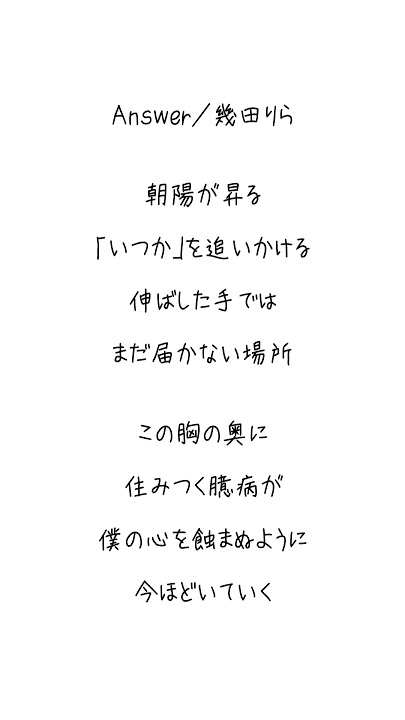 Answer/幾田りら
朝陽が昇る
「いつか」を追いかける
伸ばした手では
まだ届かない場所
この胸の奥に
住みつく臆病が
僕の心を蝕まぬように
今ほどいていく